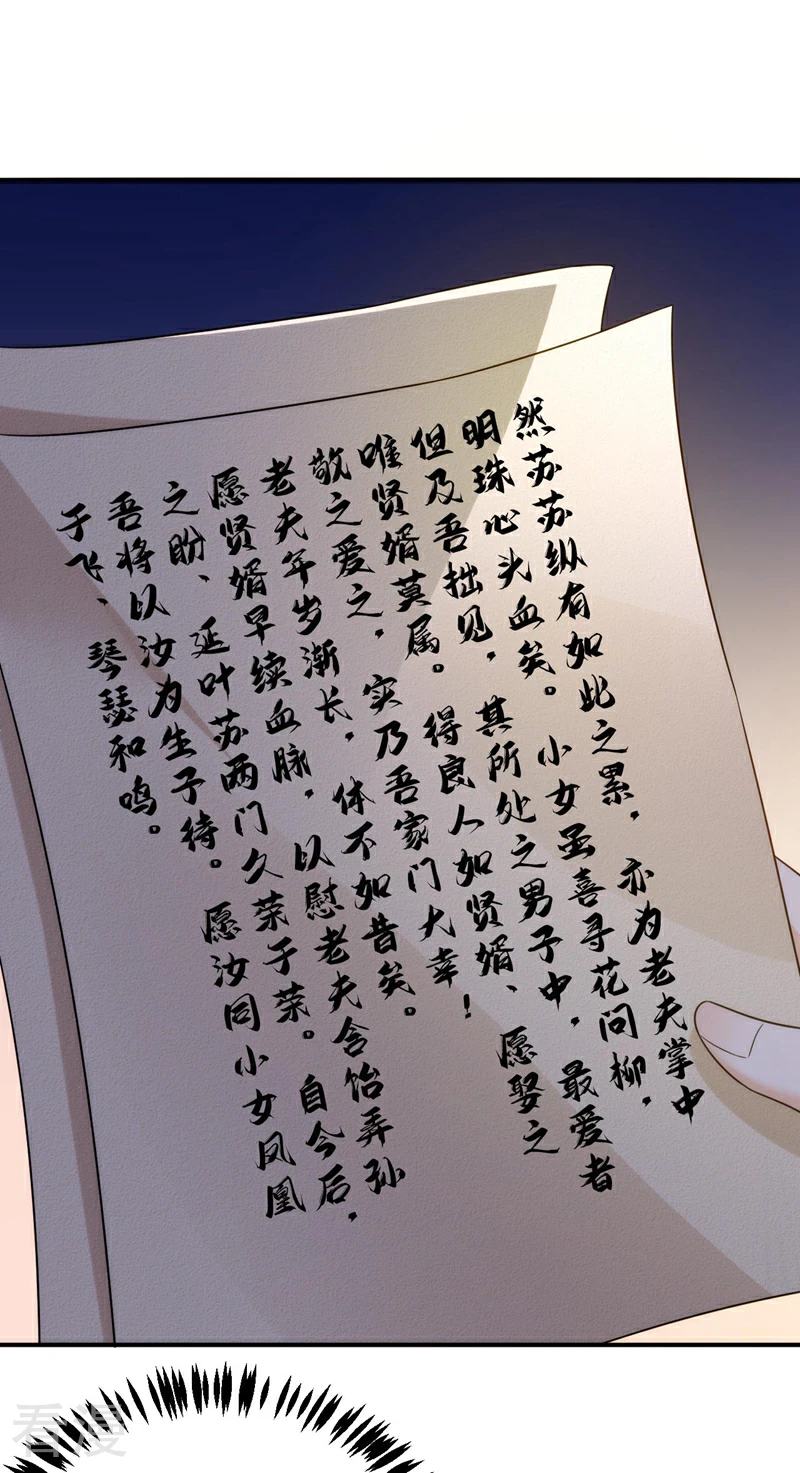 然苏苏纵有如此之累，亦为老夫掌中
明珠心头血矣。小女虽喜寻花问柳，
但及吾拙见，其所处之男子中，最爱者
唯贤婿莫属。得良人如贤婿、愿娶之
敬之爱之，实乃吾家门大幸！
老夫年岁渐长，体不如昔矣。
愿贤婿早续血脉，以慰老夫含饴弄孙
之盼、延叶苏两门久荣于荣。自今后，
吾将以汝为生子待。愿汝同小女凤凰
于飞、琴瑟和鸣。
看漫